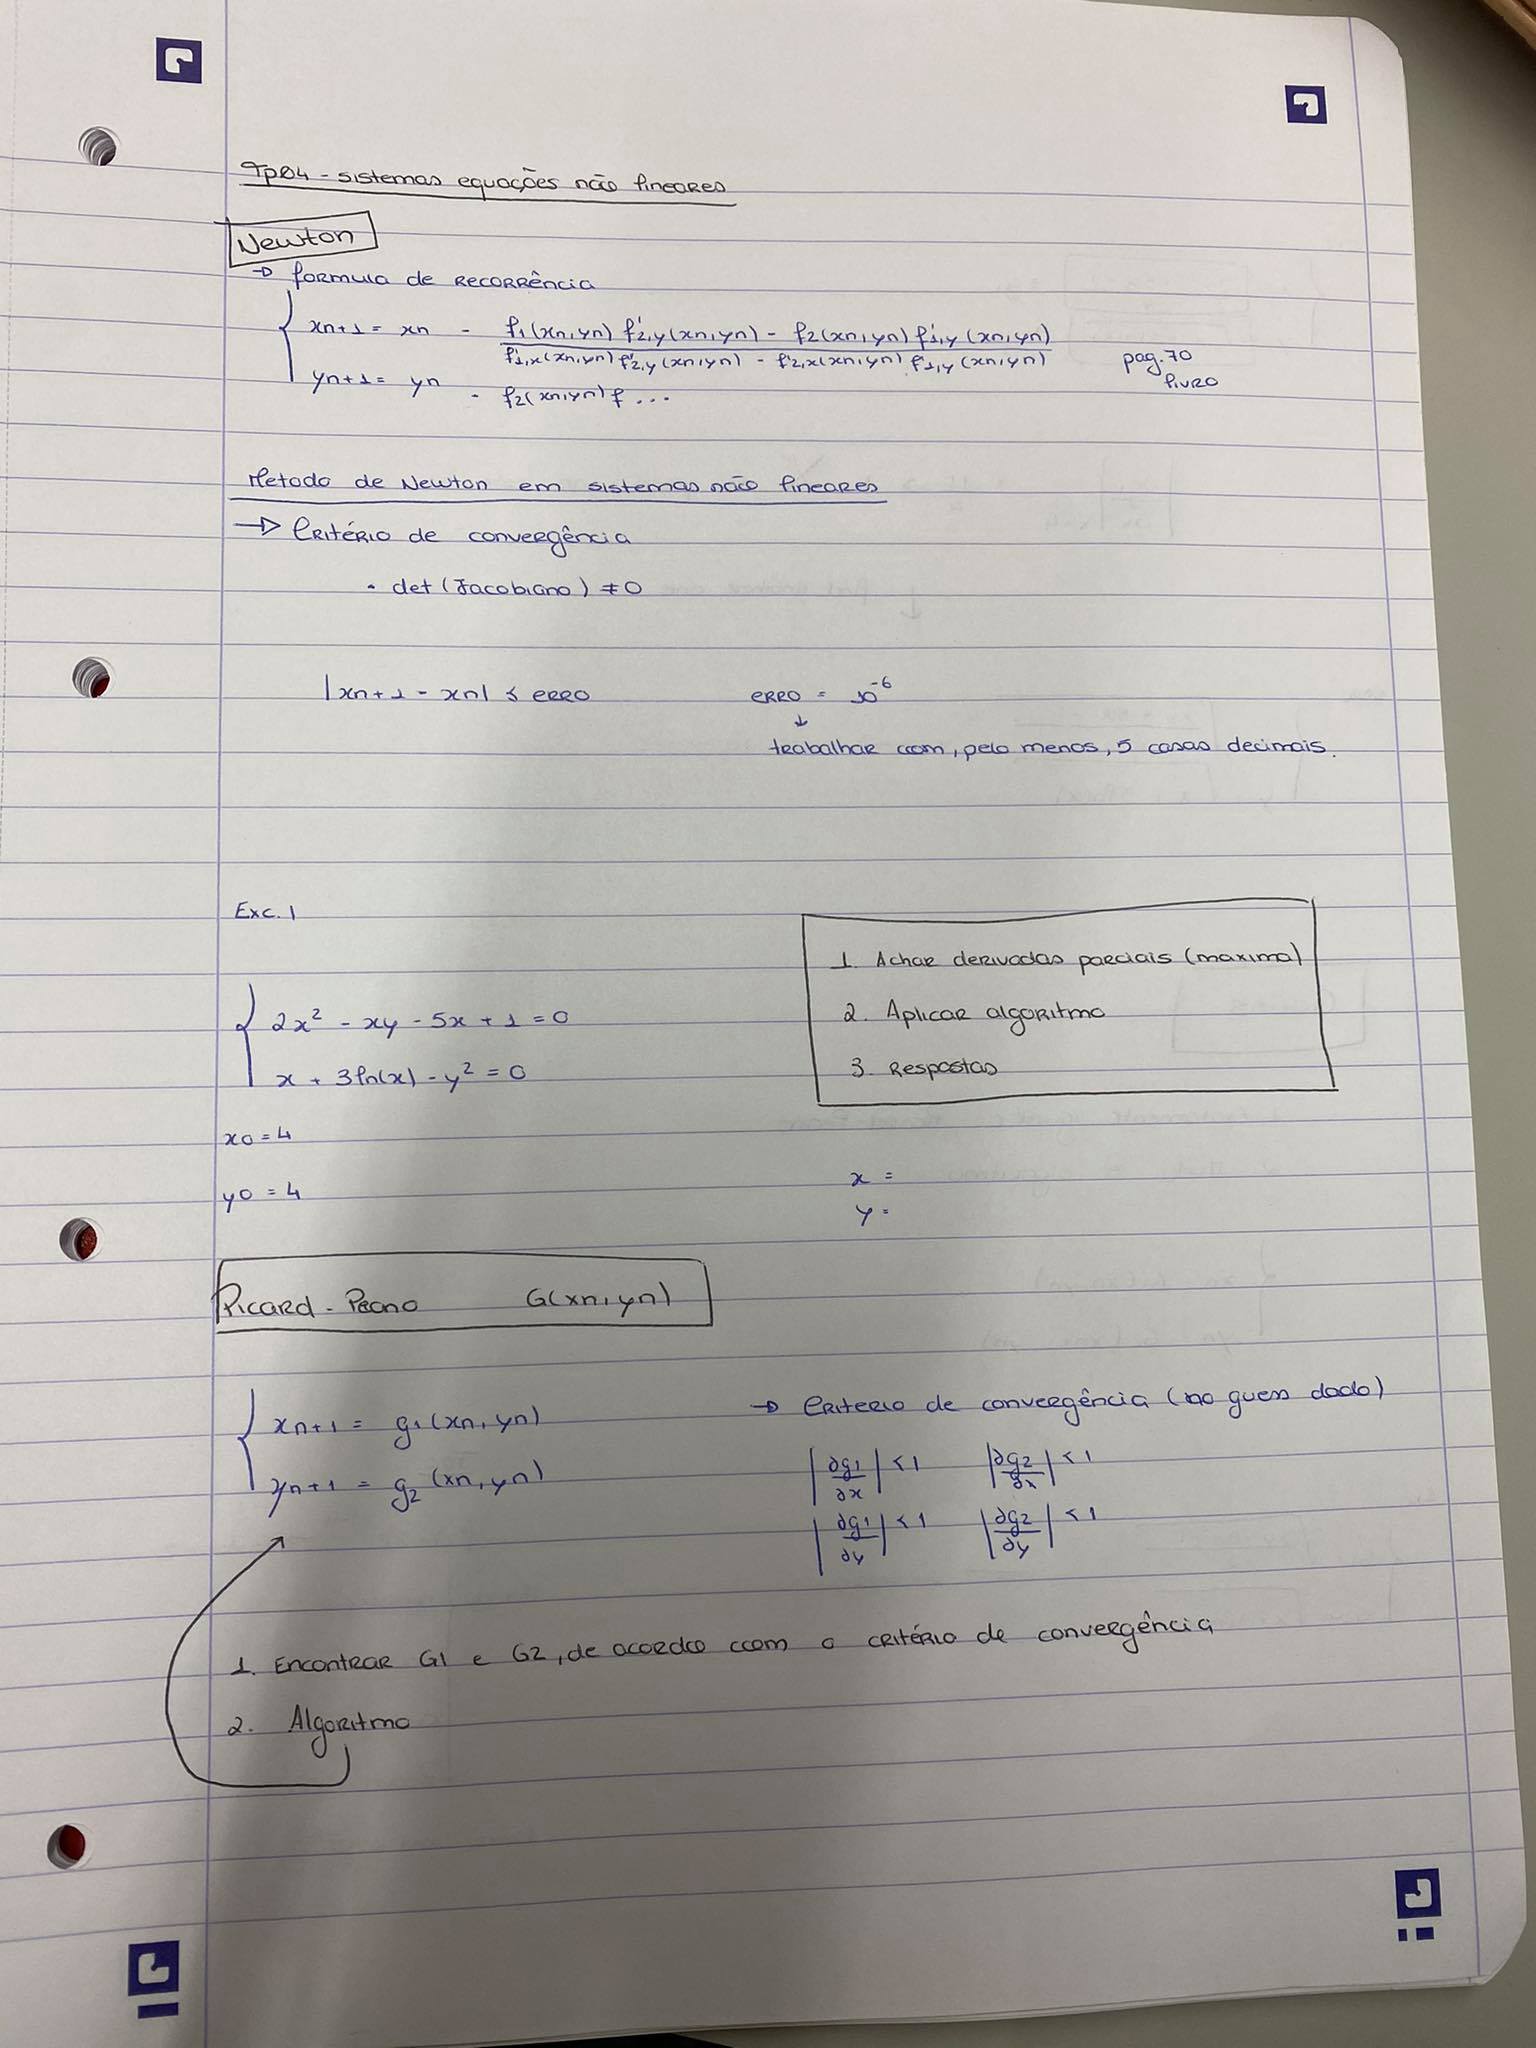 Tp04 - sistemas equações não lineares
Newton
→ formula de recorrência
xn+1 = xn - f1(xn,yn) f'2,y(xn,yn) - f2(xn,yn) f'1,y(xn,yn)
f'1,x(xn,yn) f'2,y(xn,yn) - f'2,x(xn,yn) f'1,y(xn,yn)
pag. 70
livro
yn+1 = yn - f2(xn,yn) f ...
Metodo de Newton em sistemas não lineares
→ Critério de convergência
• det (Jacobiano) ≠ 0
|xn+1 - xn| ≤ erro erro = 10⁻⁶
↓
trabalhar com, pelo menos, 5 casas decimais.
Exc. 1
2x² - xy - 5x + 1 = 0
x + 3ln(x) - y² = 0
x0 = 4
y0 = 4
1. Achar derivadas parciais (maxima)
2. Aplicar algoritmo
3. Respostas
x =
y =
Picard - Peano G(xn, yn)
xn+1 = g1 (xn, yn)
yn+1 = g2 (xn, yn)
→ Criterio de convergência (no guess dado)
|∂g1/∂x| < 1 |∂g2/∂x| < 1
|∂g1/∂y| < 1 |∂g2/∂y| < 1
1. Encontrar G1 e G2, de acordo com o critério de convergência
2. Algoritmo